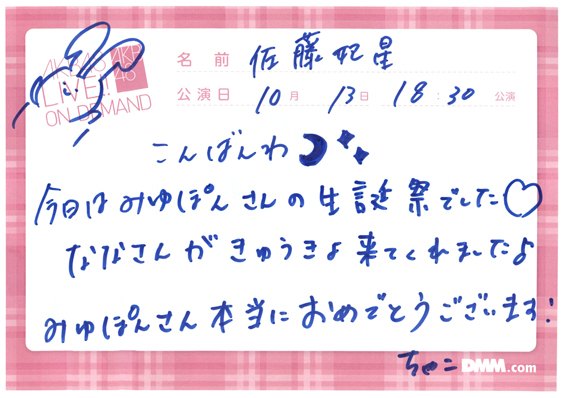 AKB48
LIVE!!
ON DEMAND
AKB
48
名前 佐藤妃星
公演日 10月 13日 18:30 公演
こんばんわ
今日はみゆぽんさんの生誕祭でした♡
ななさんがきゅうきょ来てくれましたよ
みゆぽんさん本当におめでとうございます!
ちゃこ
DMM.com